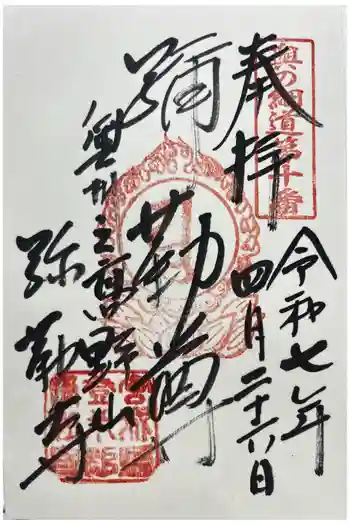 奥の細道第十番
奉拝
令和七年
四月二十六日
彌勒尊
奥州之高野山
弥勒寺